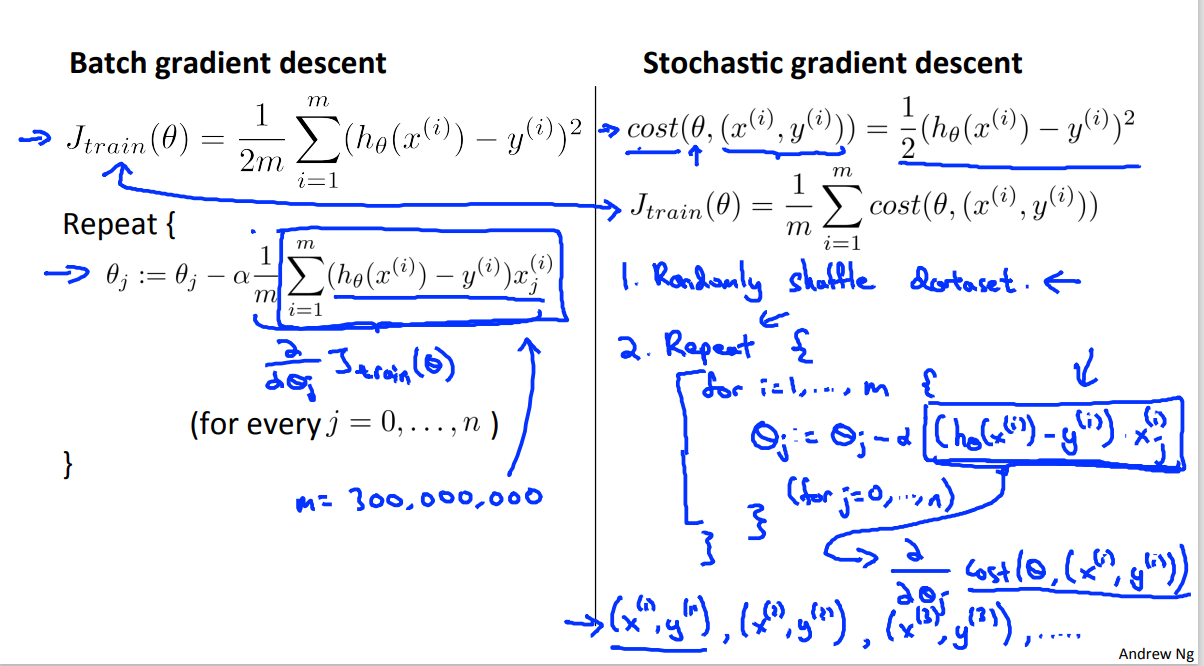 Batch gradient descent
J_train(θ) = 1/2m ∑_{i=1}^{m} (h_θ(x^(i)) − y^(i))²
Repeat {
θ_j := θ_j − α 1/m ∑_{i=1}^{m} (h_θ(x^(i)) − y^(i))x_j^(i)
∂/∂θ_j J_train(θ)
(for every j = 0, . . . , n )
}
m = 300,000,000
Stochastic gradient descent
cost(θ, (x^(i), y^(i))) = 1/2 (h_θ(x^(i)) − y^(i))²
J_train(θ) = 1/m ∑_{i=1}^{m} cost(θ, (x^(i), y^(i)))
1. Randomly shuffle dataset.
2. Repeat {
for i=1,...., m {
θ_j := θ_j − α (h_θ(x^(i)) − y^(i)) · x_j^(i)
(for j=0,...,n)
}
}
∂/∂θ_j cost(θ, (x^(i), y^(i)))
(x^(1), y^(1)), (x^(2), y^(2)), (x^(3), y^(3)), .....
Andrew Ng